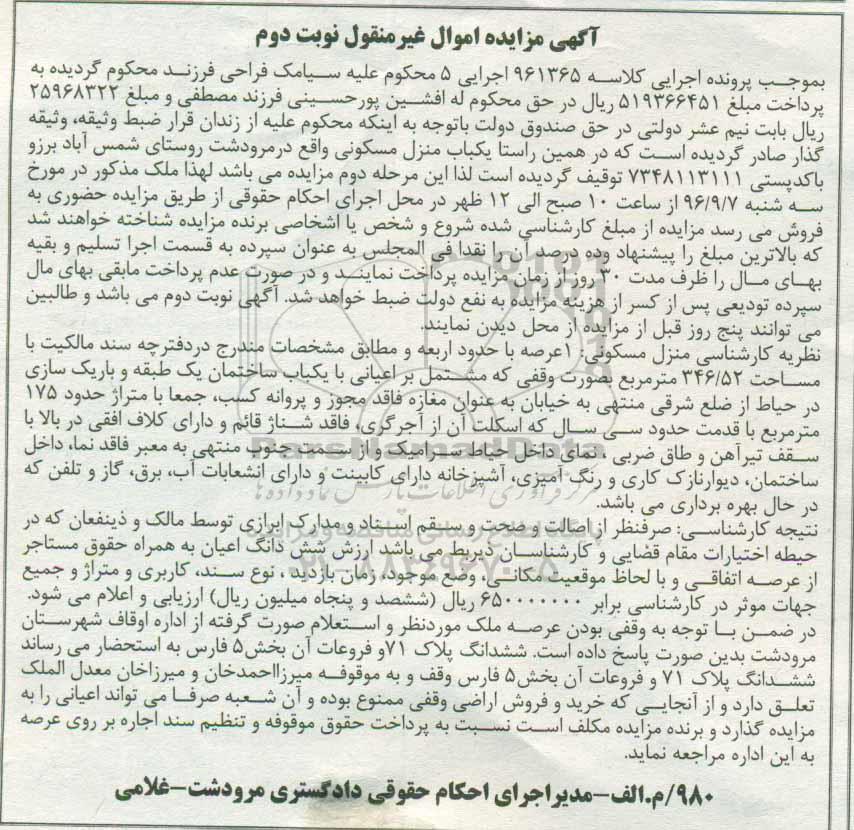 آگهی مزایده اموال غیرمنقول نوبت دوم
بموجب پرونده اجرایی کلاسه ۹۶۱۳۶۵ اجرایی ۵ محکوم علیه سیامک فراحی فرزند محکوم گردیده به
پرداخت مبلغ ۵۱۹۳۶۶۴۵۱ ریال در حق محکوم له افشین پورحسینی فرزند مصطفی و مبلغ ۲۵۹۶۸۳۲۲
ریال بابت نیم عشر دولتی در حق صندوق دولت باتوجه به اینکه محکوم علیه از زندان قرار ضبط وثیقه، وثیقه
گذار صادر گردیده است که در همین راستا یکباب منزل مسکونی واقع درمرودشت روستای شمس آباد برزو
باکدپستی ۷۳۴۸۱۱۳۱۱۱ توقیف گردیده است لذا این مرحله دوم مزایده می باشد لهذا ملک مذکور در مورخ
سه شنبه ۹۶/۹/۷ از ساعت ۱۰ صبح الی ۱۲ ظهر در محل اجرای احکام حقوقی از طریق مزایده حضوری به
فروش می رسد مزایده از مبلغ کارشناسی شده شروع و شخص یا اشخاصی برنده مزایده شناخته خواهند شد
که بالاترین مبلغ را پیشنهاد وده درصد آن را نقدا فی المجلس به عنوان سپرده به قسمت اجرا تسلیم و بقیه
بهای مال را ظرف مدت ۳۰ روز از زمان مزایده پرداخت نمایند و در صورت عدم پرداخت مابقی بهای مال
سپرده تودیعی پس از کسر از هزینه مزایده به نفع دولت ضبط خواهد شد. آگهی نوبت دوم می باشد و طالبین
می توانند پنج روز قبل از مزایده از محل دیدن نمایند.
نظریه کارشناسی منزل مسکونی: ۱عرصه با حدود اربعه و مطابق مشخصات مندرج دردفترچه سند مالکیت با
مساحت ۳۴۶/۵۲ مترمربع بصورت وقفی که مشتمل بر اعیانی با یکباب ساختمان یک طبقه و باریک سازی
در حیاط از ضلع شرقی منتهی به خیابان به عنوان مغازه فاقد مجوز و پروانه کسب، جمعا با متراژ حدود ۱۷۵
مترمربع با قدمت حدود سی سال که اسکلت آن از آجرگری، فاقد شناژ قائم و دارای کلاف افقی در بالا با
سقف تیرآهن و طاق ضربی ، نمای داخل حیاط سرامیک و از سمت جنوب منتهی به معبر فاقد نما، داخل
ساختمان، دیوارنازک کاری و رنگ آمیزی، آشپزخانه دارای کابینت و دارای انشعابات آب، برق، گاز و تلفن که
در حال بهره برداری می باشد.
نتیجه کارشناسی: صرفنظر از اصالت و صحت و سقم اسناد و مدارک ابرازی توسط مالک و ذینفعان که در
حیطه اختیارات مقام قضایی و کارشناسان ذیربط می باشد ارزش شش دانگ اعیان به همراه حقوق مستاجر
از عرصه اتفاقی و با لحاظ موقعیت مکانی، وضع موجود، زمان بازدید ، نوع سند، کاربری و متراژ و جمیع
جهات موثر در کارشناسی برابر ۶۵۰۰۰۰۰۰۰ ریال (ششصد و پنجاه میلیون ریال) ارزیابی و اعلام می شود.
در ضمن با توجه به وقفی بودن عرصه ملک موردنظر و استعلام صورت گرفته از اداره اوقاف شهرستان
مرودشت بدین صورت پاسخ داده است. ششدانگ پلاک ۷۱و فروعات آن بخش۵ فارس به استحضار می رساند
ششدانگ پلاک ۷۱ و فروعات آن بخش۵ فارس وقف و به موقوفه میرزااحمدخان و میرزاخان معدل الملک
تعلق دارد و از آنجایی که خرید و فروش اراضی وقفی ممنوع بوده و آن شعبه صرفا می تواند اعیانی را به
مزایده گذارد و برنده مزایده مکلف است نسبت به پرداخت حقوق موقوفه و تنظیم سند اجاره بر روی عرصه
به این اداره مراجعه نماید.
۹۸۰/م.الف-مدیراجرای احکام حقوقی دادگستری مرودشت-غلامی
ParsNamadData
۰۲۱-۸۸۳۴۹۶۷۰-۵